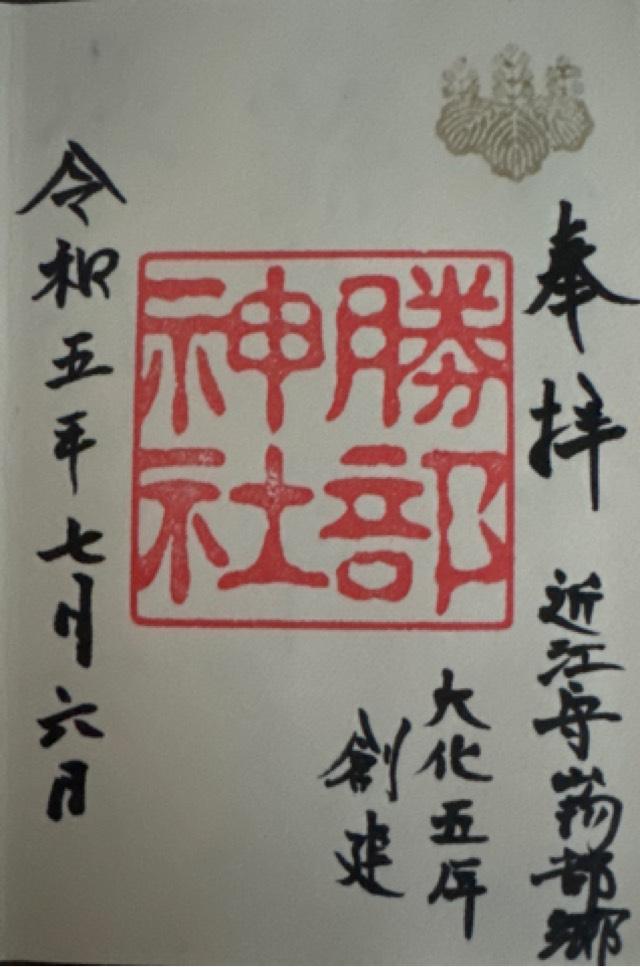 奉拝
近江守山物部郷
勝部
神社
大化五年
創建
令和五年七月六日